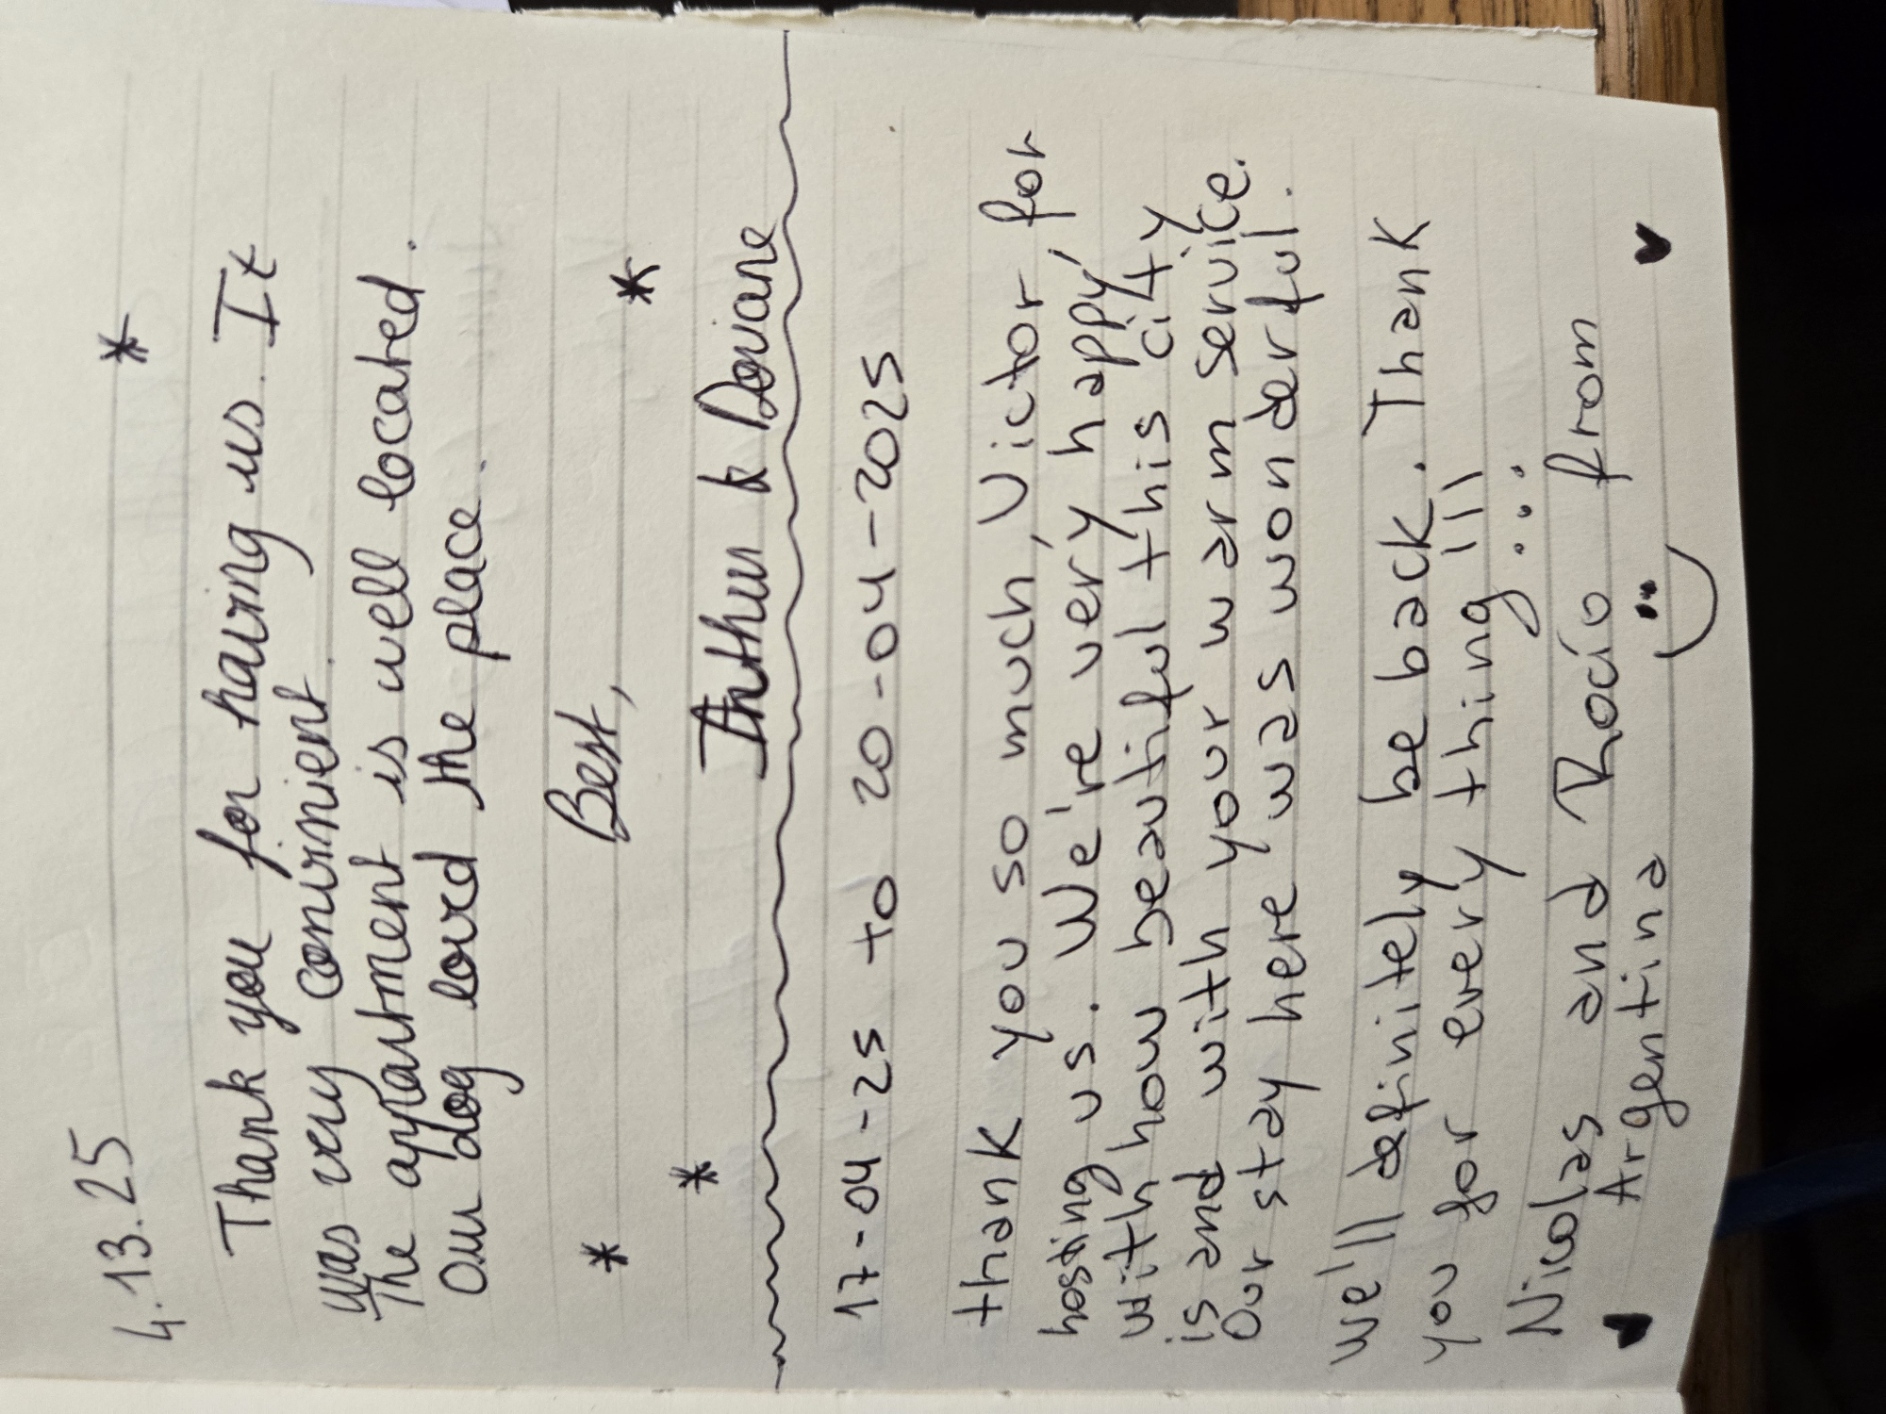 4.13.25
Thank you for having us. It
was very convinient.
The appartment is well located.
Our dog loved the place.
Best,
Arthur & Doviane
17-04-25 to 20-04-2025
thank you so much, Victor for
hosting us. We're very happy,
with how beautiful this city
is and with your warm service.
Our stay here was wonderful.
We'll definitely be back. Thank
you for every thing!!!
Nicolas and Rocío from
Argentina